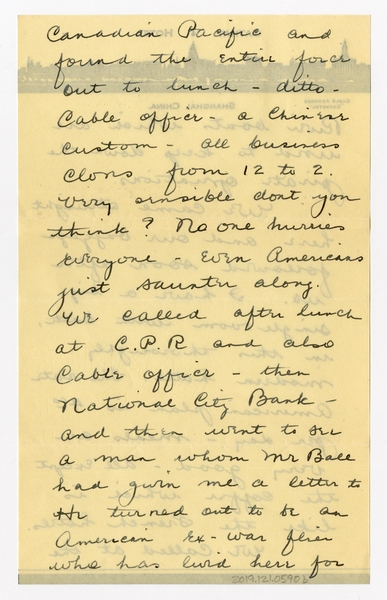 Canadian Pacific and
found the entire force
out to lunch - ditto -
Cable office - a Chinese
custom - all business
clons from 12 to 2.
Very sensible dont you
think? No one hurries
everyone - even Americans
just saunter along.
We called after lunch
at C.P.R and also
Cable office - then
National City Bank -
and then went to see
a man whom Mr Ball
had givin me a letter to
He turned out to be an
American Ex-war flier
who has livd here for
2019.121.0590b